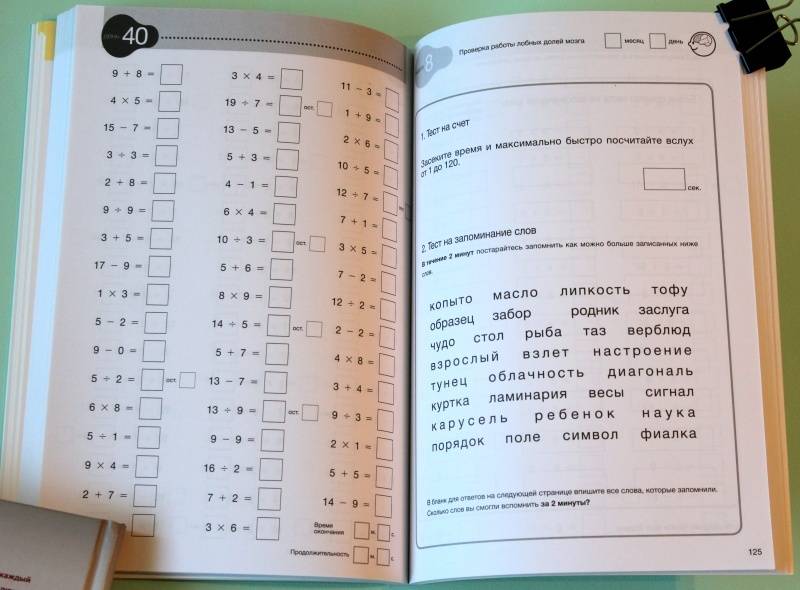 40
9 + 8 =
4 × 5 =
15 − 7 =
3 ÷ 3 =
2 + 8 =
9 ÷ 9 =
3 + 5 =
17 − 9 =
1 × 3 =
5 − 2 =
9 − 0 =
5 ÷ 2 = ост.
6 × 8 =
5 ÷ 1 =
9 × 4 =
2 + 7 =
3 × 4 =
19 ÷ 7 = ост.
13 − 5 =
5 + 3 =
4 − 1 =
6 × 4 =
10 ÷ 3 = ост.
5 + 6 =
8 × 9 =
14 ÷ 5 = ост.
5 + 7 =
13 − 7 =
13 ÷ 9 = ост.
9 − 9 =
16 ÷ 2 =
7 + 2 =
3 × 6 =
11 − 3 =
1 + 9 =
2 × 6 =
10 ÷ 5 =
12 ÷ 7 =
7 + 1 =
3 × 5 =
7 − 2 =
12 ÷ 2 =
2 − 2 =
4 × 8 =
3 + 4 =
9 ÷ 3 =
2 × 1 =
5 + 5 =
14 − 9 =
Время
окончания м. с.
Продолжительность м. с.
каждый
8
Проверка работы лобных долей мозга месяц день
1. Тест на счет
Засеките время и максимально быстро посчитайте вслух
от 1 до 120.
сек.
2. Тест на запоминание слов
В течение 2 минут постарайтесь запомнить как можно больше записанных ниже
слов.
копыто масло липкость тофу
образец забор родник заслуга
чудо стол рыба таз верблюд
взрослый взлет настроение
тунец облачность диагональ
куртка ламинария весы сигнал
карусель ребенок наука
порядок поле символ фиалка
В бланк для ответов на следующей странице впишите все слова, которые запомнили.
Сколько слов вы смогли вспомнить за 2 минуты?
125